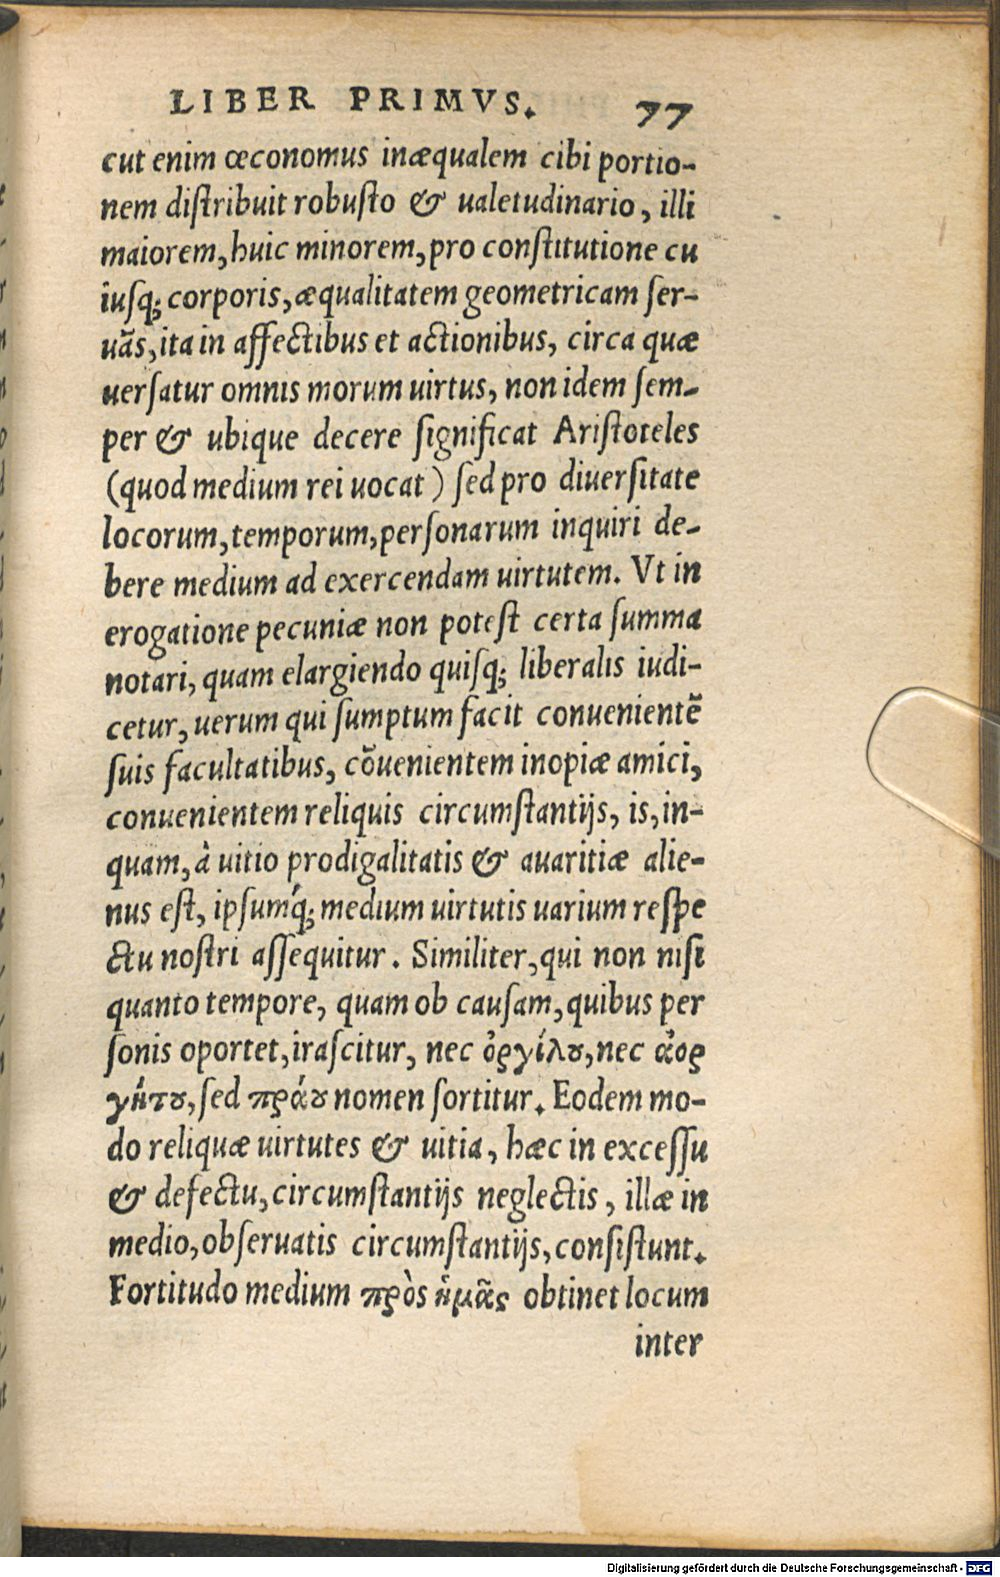 LIBER PRIMVS. 77
cut enim œconomus inæqualem cibi portio-
nem diſtribuit robuſto & ualetudinario, illi
maiorem, huic minorem, pro conſtitutione cu
iuſq; corporis, æqualitatem geometricam ſer-
uãs, ita in affectibus et actionibus, circa quæ
uerſatur omnis morum uirtus, non idem ſem-
per & ubique decere ſignificat Ariſtoteles
(quod medium rei uocat) ſed pro diuerſitate
locorum, temporum, perſonarum inquiri de-
bere medium ad exercendam uirtutem. Vt in
erogatione pecuniæ non poteſt certa ſumma
notari, quam elargiendo quiſq; liberalis iudi-
cetur, uerum qui ſumptum facit conuenientẽ
ſuis facultatibus, cõuenientem inopiæ amici,
conuenientem reliquis circumſtantijs, is, in-
quam, à uitio prodigalitatis & auaritiæ alie-
nus eſt, ipſumq́; medium uirtutis uarium reſpe
ctu noſtri aſſequitur. Similiter, qui non niſi
quanto tempore, quam ob cauſam, quibus per
ſonis oportet, iraſcitur, nec ὀργίλȣ, nec ἀορ
γήτȣ, ſed πράȣ nomen ſortitur. Eodem mo-
do reliquæ uirtutes & uitia, hæc in exceſſu
& defectu, circumſtantijs neglectis, illæ in
medio, obſeruatis circumſtantijs, conſiſtunt.
Fortitudo medium πρὸς ἡμᾶς obtinet locum
inter
Digitalisierung gefördert durch die Deutsche Forschungsgemeinschaft - DFG